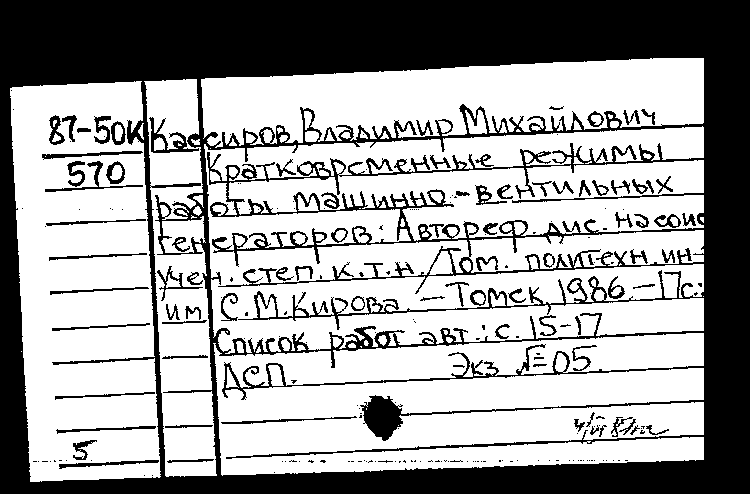 87-50к Кассиров, Владимир Михайлович
570 Кратковременные режимы
работы машинно-вентильных
генераторов: Автореф. дис. на соис
учен. степ. к.т.н. / Том. политехн. ин-
им С.М.Кирова. – Томск, 1986. – 17с.:
Список работ авт.: с. 15-17
ДСП. Экз №05.
5